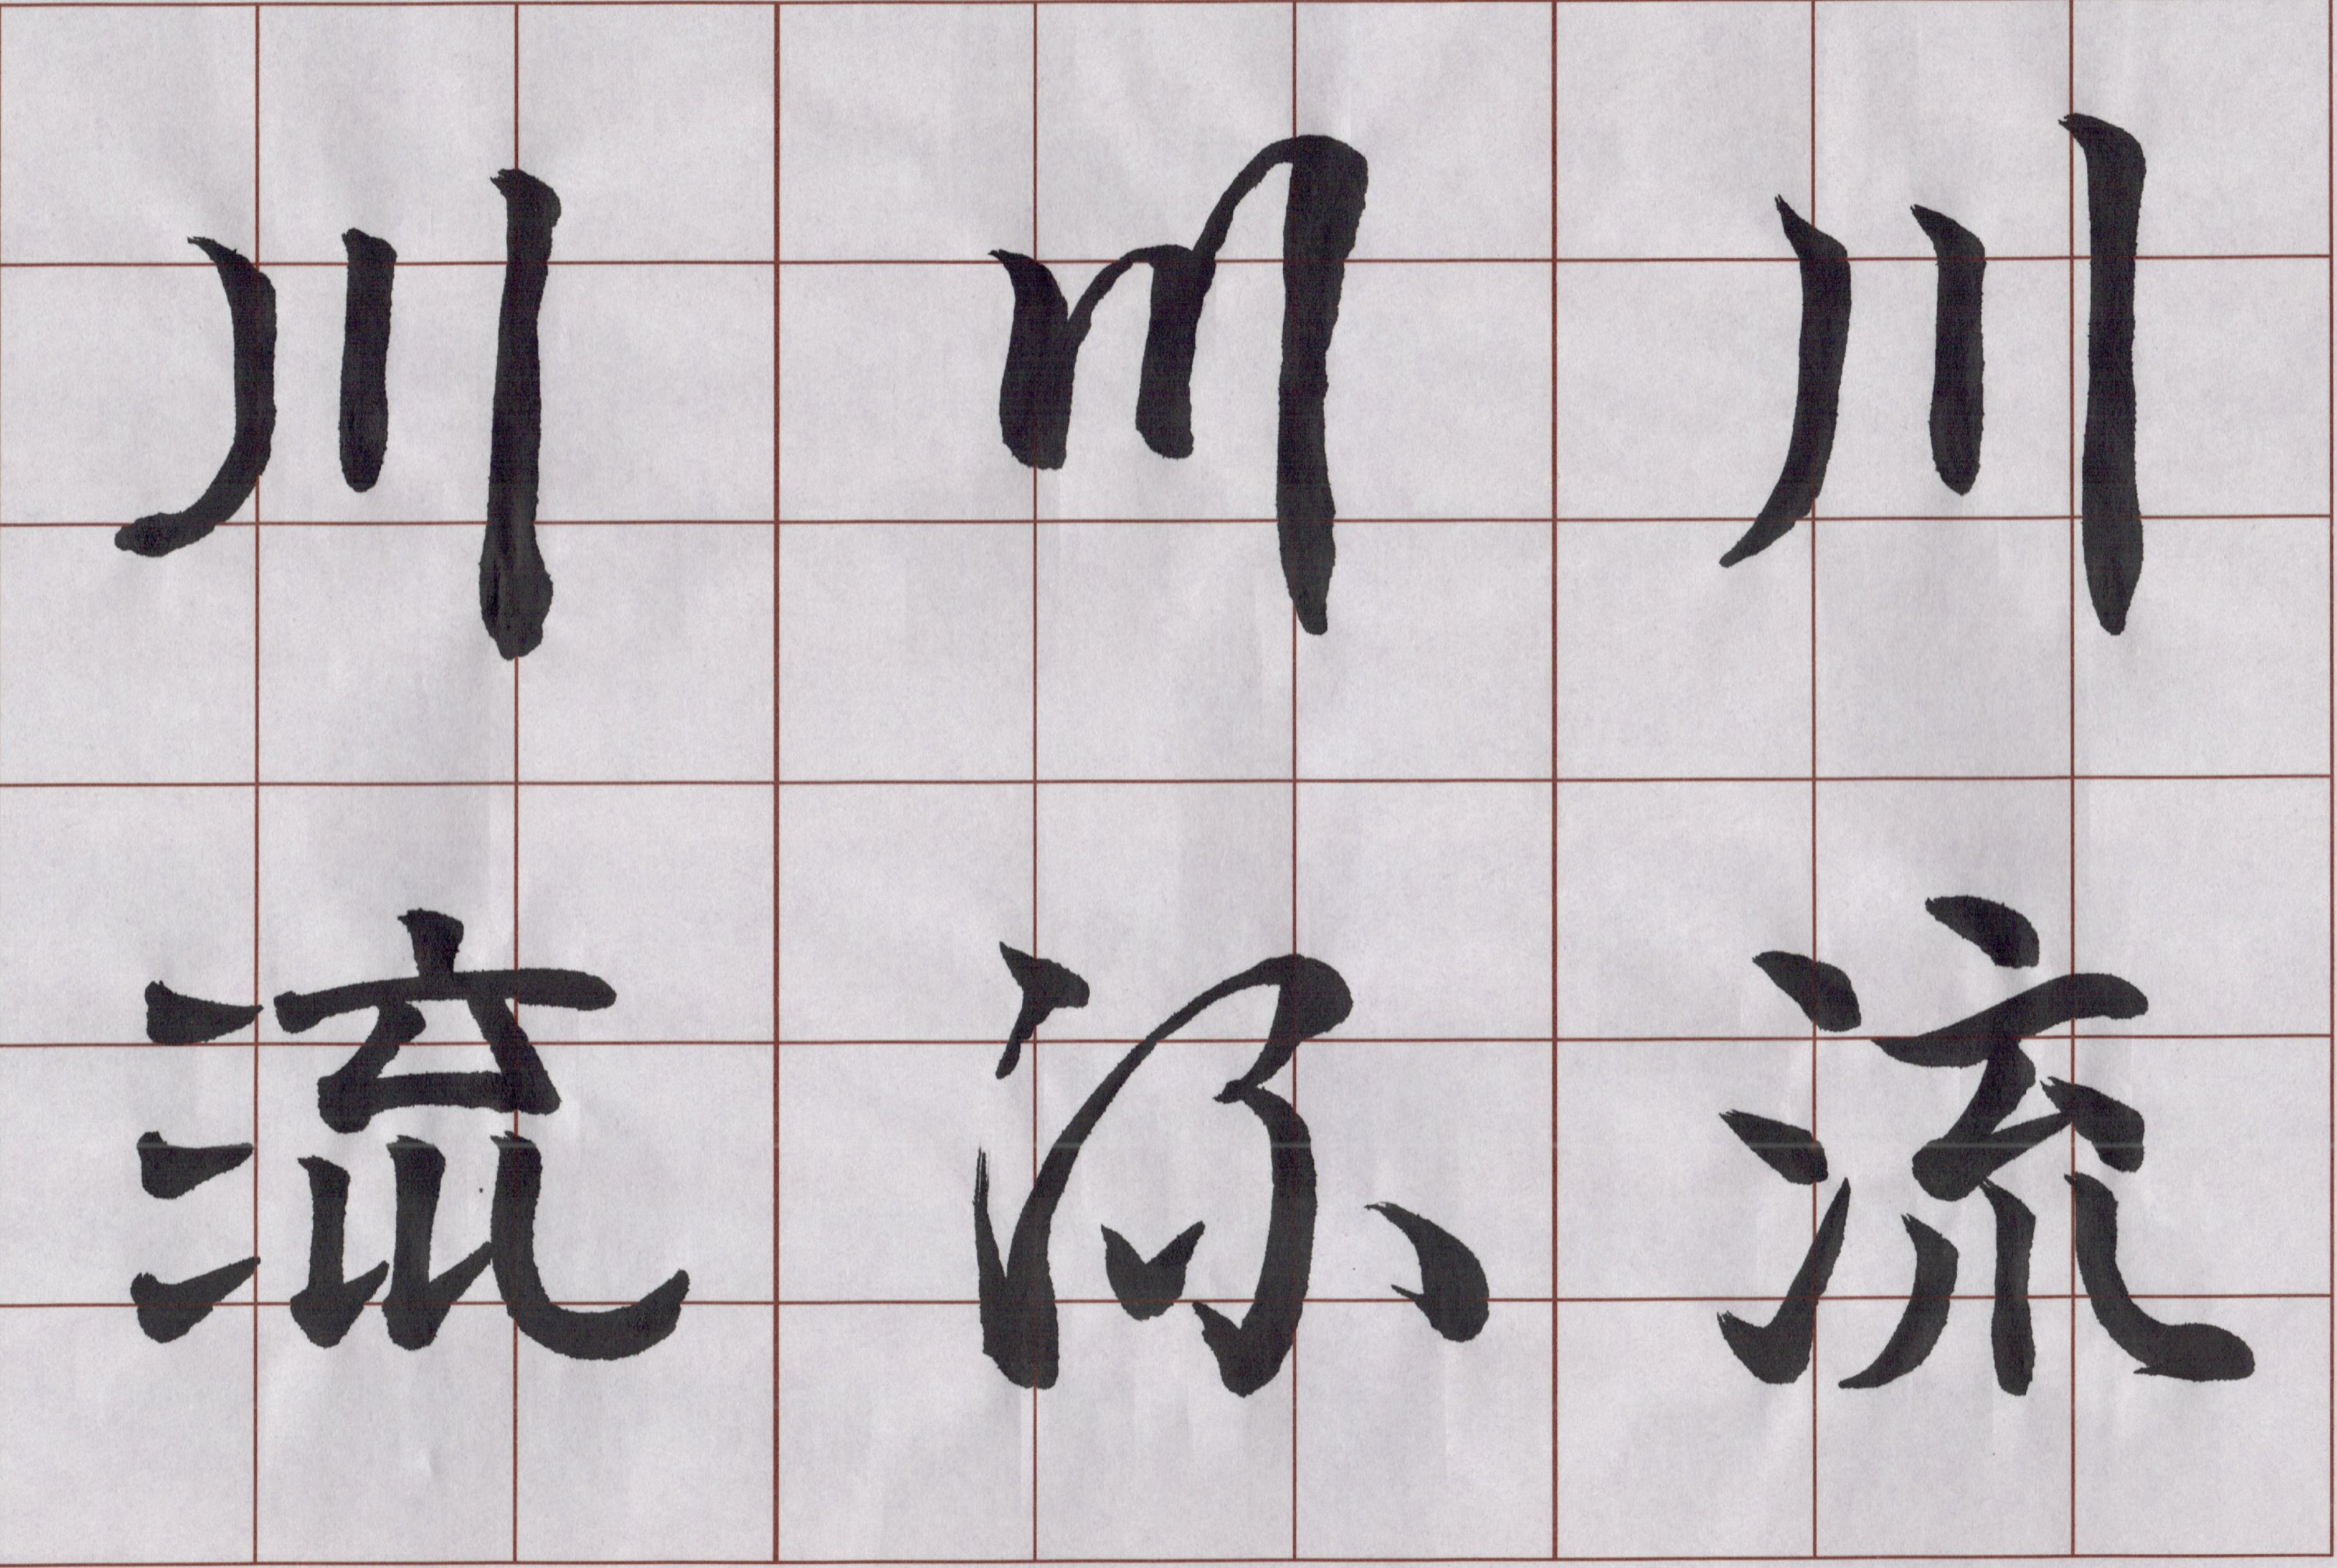 川流
川流
川流